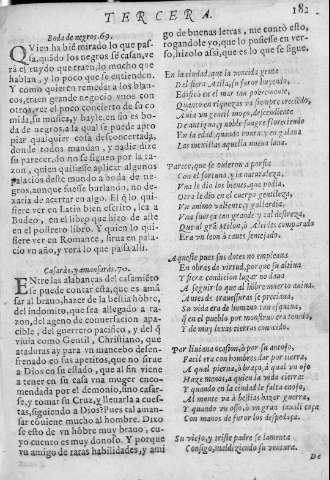 TERCERA.
182
Boda de negros. 69.
QVien ha biē mirado lo que pas-
sa, quādo los negros se casan, ve
rá el ruydo que traen, lo mucho que
hablan, y lo poco que se entienden.
Y como quieren remedar a los blan-
cos, traen grande negocio vnos con
otros, vez el poco concierto de su co
mida, su musica, y bayle, en fin es bo
da de negros, a la qual se puede apro
piar qualquier cosa desconcertada,
donde todos mandan, y nadie dize
su parecer, do no se siguen por la ra-
zon, quien quisiesse aplicar algunos
palacios deste mundo a boda de ne-
gros, aunque fuesse burlando, no de-
xaria de acertar en algo. El q̄ lo qui-
siere ver en Latin bien escrito, lea a
Budeo, en el libro que hizo de asse
en el postrero libro. Y quien lo qui-
siere ver en Romance, sirua en pala-
cio vn año, y vera lo que passa alli.
Casar, y amansar. 70.
ENtre las alabanças del casamiēto
se puede contar esta, que es aman
sar al brauo, hazer de la bestia hōbre,
del indomito, que sea allegado a ra-
zon, del ageno de conuersacion apa-
zible, y del guerrero pacifico, y del q̄
viuia como Gentil, Christiano, que
ataduras ay para vn mancebo desen-
frenado en sus apetitos, que no sirue
a Dios en su estado, que al fin viene
a tener en su casa vna muger enco-
mendada por el demonio, sino casar-
se, y tomar su Cruz, y lleuarla a cues-
tas, siguiendo a Dios? Pues tal aman-
sar conuiene mucho al hombre. Dixo
se esto de vn hōbre muy brauo,
cuyo cuento es muy donoso. Y porque
vn amigo de raras habilidades, y ami
go de buenas letras, me contó esto,
rogandole yo, que lo pusiesse en ver-
so, hizolo assi, que es lo que se sigue.
En la ciudad, que la vencida gente
Del fiero Atila, su furor huyendo,
Edificó en el mar tan pobremente,
Quanto en riquezas va siempre creciendo,
Auia vn gentil moço, descendiente
De antigua y noble sangre floreciendo
En la edad, quando honra y en galana
Las mexillas aquella nueua lana.
Parece, que se dieron a porfia
Con el fortuna, y la naturaleza,
Vna le dio los bienes, que podia,
Otra le dio en el cuerpo gentileza,
Vn animo valiente, y gallardia,
Vna fuerça tan grande y tal destreza,
Que al grā Milon, ò Alcides comparado
Era vn leon à veces semejado.
Aquestos pues sus dotes no empleaua
En obras de virtud, porque su altiua
Y feroz condicion no daua lugar
A seguir lo que al hōbre muerto auiua,
Antes de trauessuras se preciaua,
Su vida era de humano tan esquiua,
Q̄ en el pueblo por monstruo era tenido,
Y de muy locas tierras conocido.
Por liuiana ocasion, ò por su antojo,
Facil era con hombres dar por tierra,
A qual pierna, ò braço, à qual vn ojo
Haze menos, à quien la vida cierra:
Y quando en la ciudad le falta enojo,
Al monte va à bestias hazer guerra,
Y quando vn osso, ò vn gran jauali caça
Con manos de furor los despedaça.
Su viejo, y triste padre se lamenta
Consigo, maldiziendo su ventura.
De